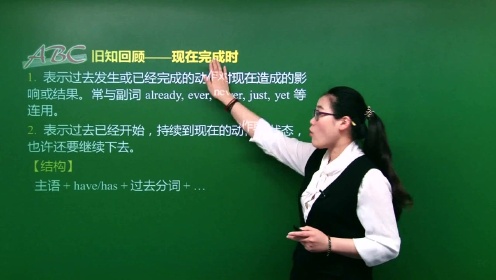 ABC 旧知回顾——现在完成时
1. 表示过去发生或已经完成的动作对现在造成的影
响或结果。常与副词 already, ever, never, just, yet 等
连用。
2. 表示过去已经开始，持续到现在的动作 状态，
也许还要继续下去。
【结构】
主语 + have/has + 过去分词 + …